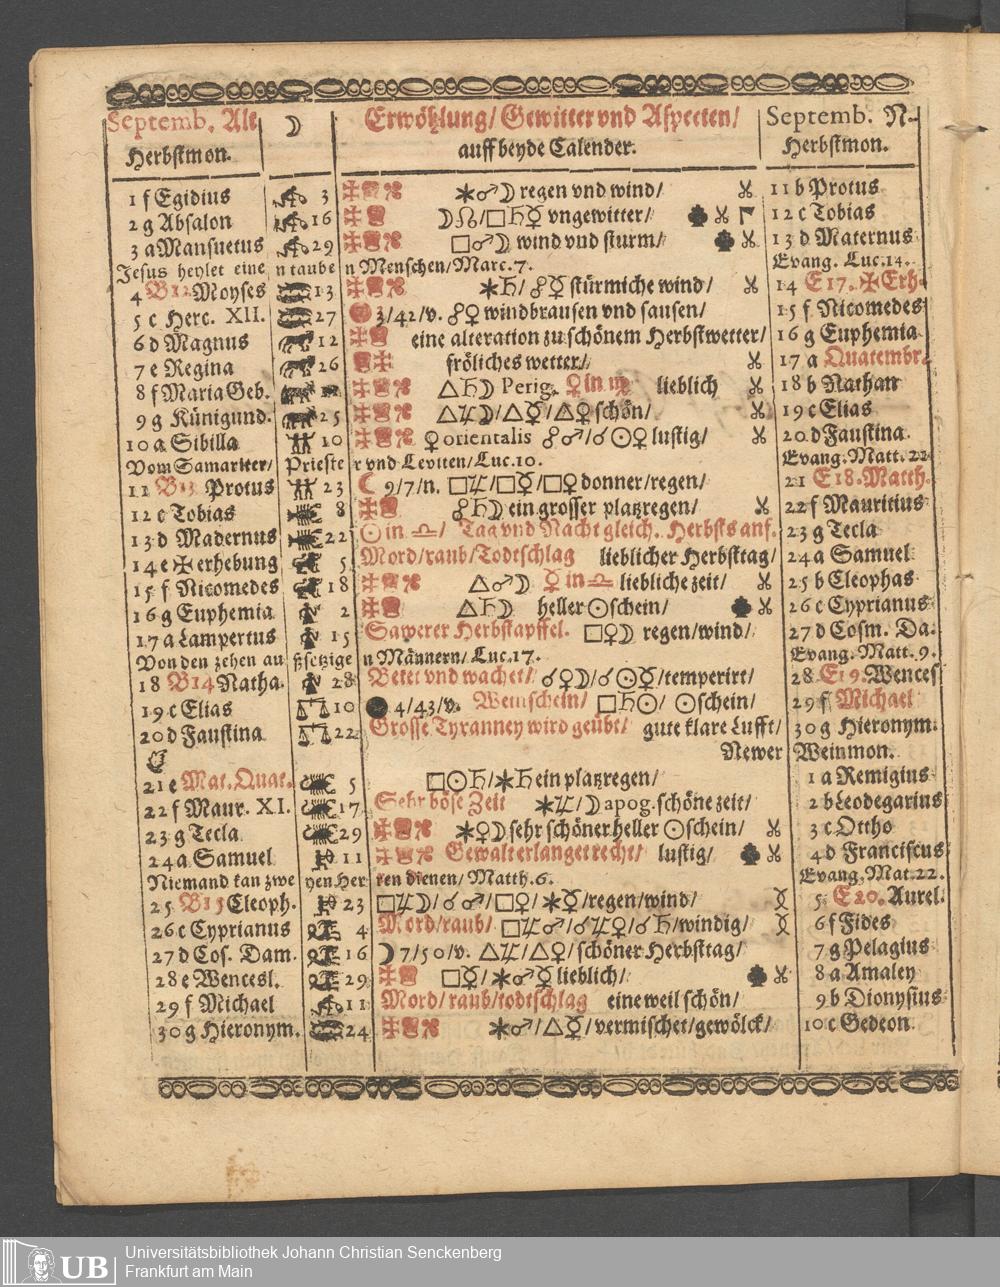 Septemb. Alt ☽ Erwöhlung/ Gewitter vnd Aspecten/ Septemb. N.
Herbstmon. auff beyde Calender. Herbstmon.
1 f Egidius 3 ⚹♂☽ regen vnd wind/ 11 b Protus
2 g Absalon 16 ☽☊/□♄☿ vngewitter/ 12 c Tobias
3 a Mansuetus 29 □♂☽ wind vnd sturm/ 13 d Maternus
Jesus heylet einen tauben Menschen/ Marc. 7. Evang. Luc. 14.
4 B 12 Moyses 13 ⚹♄/ ☍☿ stürmiche wind/ 14 E 17. ✠ Erh.
5 c Herc. XII. 27 3/42/v. ☍♀ windbrausen vnd sausen/ 15 f Nicomedes
6 d Magnus 12 eine alteration zu schönem Herbstwetter/ 16 g Euphemia
7 e Regina 26 fröliches wetter/ 17 a Quatembr.
8 f Maria Geb. △♄☽ Perig. ♀ in ♍ lieblich 18 b Nathan
9 g Künigund. 25 △♃☽/△☿/△♀ schön/ 19 c Elias
10 a Sibilla 10 ♀ orientalis ☍♂/☌☉♀ lustig/ 20 d Faustina
Vom Samariter/ Priester vnd Leviten/ Luc. 10. Evang. Matt. 22
11 B 13 Protus 23 ☾ 9/7/n. □♃/□☿/□♀ donner/regen/ 21 E 18. Matth.
12 c Tobias 8 ☍♄☽ ein grosser platzregen/ 22 f Mauritius
13 d Madernus 22 ☉ in ♎/ Tag vnd Nacht gleich. Herbsts anf. 23 g Tecla
14 e ✠ erhebung 5 Mord/raub/Todtschlag lieblicher Herbsttag/ 24 a Samuel
15 f Nicomedes 18 △♂☽ ☿ in ♎ liebliche zeit/ 25 b Cleophas
16 g Euphemia 2 △♄☽ heller ☉schein/ 26 c Cyprianus
17 a Lampertus 15 Sawerer Herbstapffel. □♀☽ regen/wind/ 27 d Cosm. Da.
Von den zehen außsetzigen Männern/ Luc. 17. Evang. Matt. 9.
18 B 14 Natha. 28 Betet vnd wachet/ ☌♀☽/☌☉☿/temperirt/ 28 E 19. Wences
19 c Elias 10 4/43/v. Weinschein/ □♄☉/ ☉schein/ 29 f Michael
20 d Faustina 22 Grosse Tyranney wird geübt/ gute klare Lufft/ 30 g Hieronym.
Newer Weinmon.
21 e Mat. Quat. 5 □☉♄/⚹♄ ein platzregen/ 1 a Remigius
22 f Maur. XI. 17 Sehr böse Zeit ⚹♃/☽ apog. schöne zeit/ 2 b Leodegarius
23 g Tecla 29 ⚹♀☽ sehr schöner heller ☉schein/ 3 c Ottho
24 a Samuel 11 Gewalt erlanget recht/ lustig/ 4 d Franciscus
Niemand kan zweyen Herren dienen/ Matth. 6. Evang. Mat. 22.
25 B 15 Cleoph. 23 □♃☽/☌♂/□♀/⚹☿/regen/wind/ 5 E 20. Aurel.
26 c Cyprianus 4 Mord/raub/ □♃♂/☌♃♀/☌♄/windig/ 6 f Fides
27 d Cos. Dam. 16 ☽ 7/50/v. △♃/△♀/schöner Herbsttag/ 7 g Pelagius
28 e Wencesl. 29 □☿/⚹♂☿ lieblich/ 8 a Amaley
29 f Michael 11 Mord/raub/todtschlag eine weil schön/ 9 b Dionysius
30 g Hieronym. 24 ⚹♂/△☿/vermischet/gewölck/ 10 c Gedeon
UB Universitätsbibliothek Johann Christian Senckenberg
Frankfurt am Main